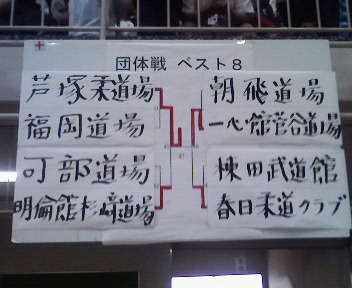 団体戦 ベスト8
芦塚柔道場
福岡道場
可部道場
明倫館杉崎道場
朝飛道場
一心館菅谷道場
棟田武道館
春日柔道クラブ